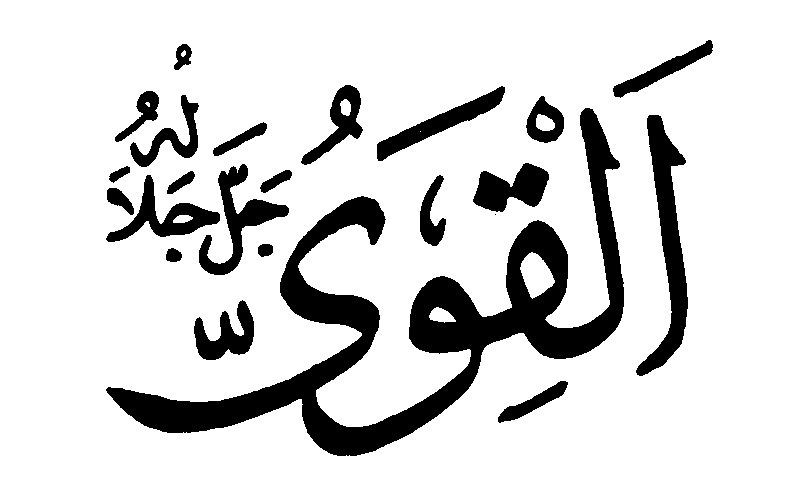 اَلْقَوِىُّ
جَلَّ جَلَالُهُ